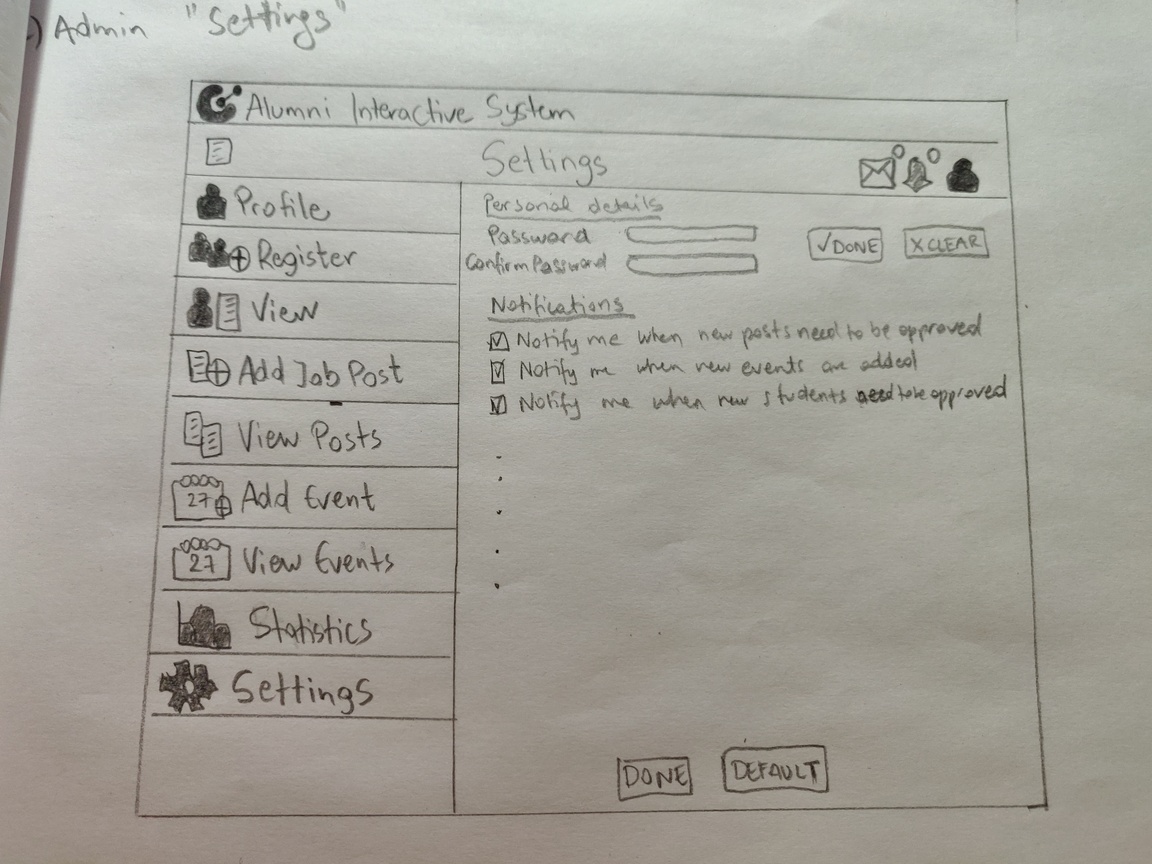 ) Admin "Settings"
Alumni Interactive System
Settings
Profile
Register
View
Add Job Post
View Posts
27 Add Event
27 View Events
Statistics
Settings
Personal details
Password
✓DONE
X CLEAR
Confirm Password
Notifications
Notify me when new posts need to be approved
Notify me when new events are added
Notify me when new students need to be approved
DONE
DEFAULT